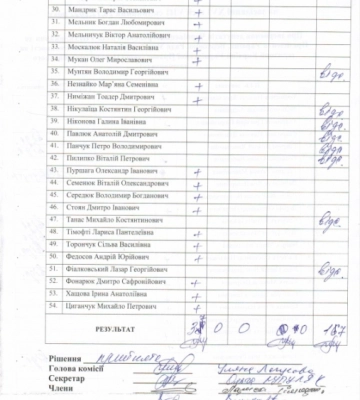 30. Мандрик Тарас Васильович +
31. Мельник Богдан Любомирович +
32. Мельничук Віктор Анатолійович +
33. Москалюк Наталія Василівна +
34. Мукан Олег Мирославович +
35. Мунтян Володимир Георгійович відс.
36. Незнайко Мар'яна Семенівна +
37. Дмитрович +
38. Нікуліца Костянтин Георгійович відс.
39. Ніконова Галина Іванівна відс.
40. Павлюк Анатолій Дмитрович відс.
41. Панчук Петро Володимирович відс.
42. Пилипко Віталій Петрович відс.
43. Пуршага Олександр Іванович +
44. Семенюк Віталій Олександрович +
45. Середюк Володимир Богданович +
46. Стоян Дмитро Іванович +
47. Танас Михайло Костянтинович відс.
48. Тімофті Лариса Пантеліївна +
49. Торончук Сільва Василівна +
50. Федосов Андрій Юрійович +
51. Фіалковський Лазар Георгійович відс.
52. Фонарюк Дмитро Сафронійович +
53. Хащова Ірина Анатоліївна +
54. Циганчук Михайло Петрович +
РЕЗУЛЬТАТ 0 0
Рішення прийнято
Голова комісії
Секретар
Члени